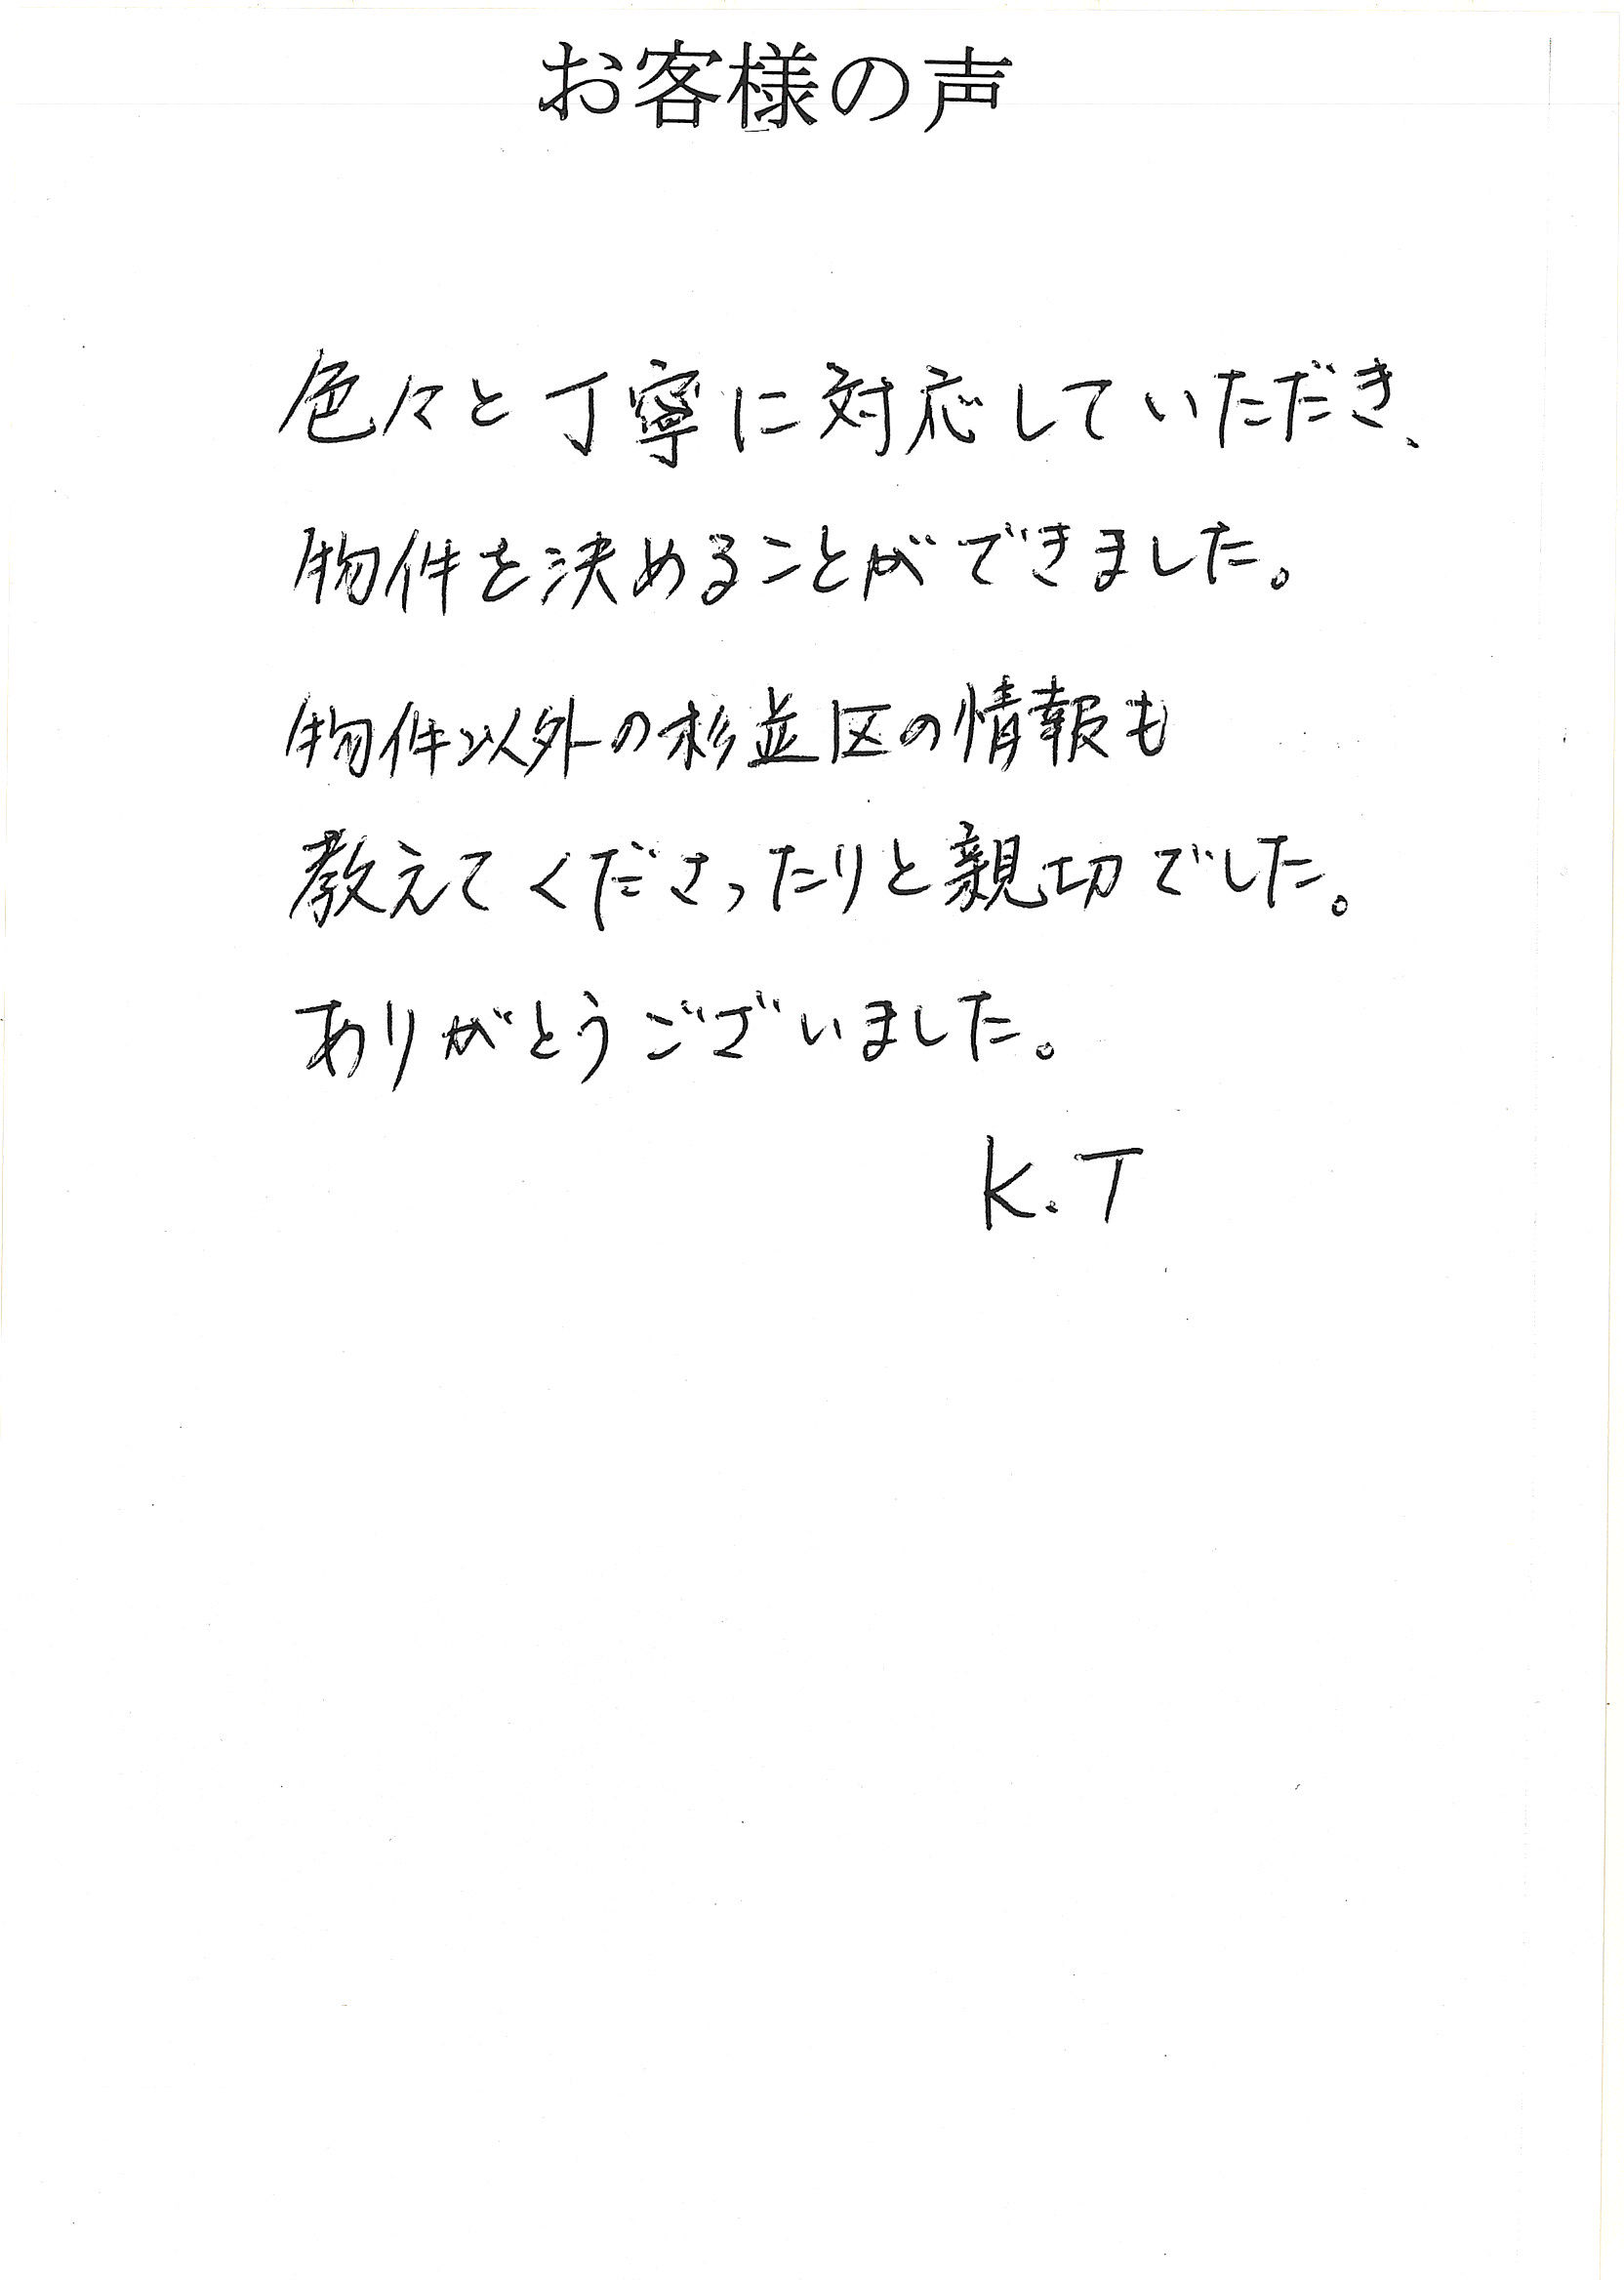 お客様の声
色々と丁寧に対応していただき、
物件を決めることができました。
物件以外の杉並区の情報も
教えてくださったりと親切でした。
ありがとうございました。
K.T